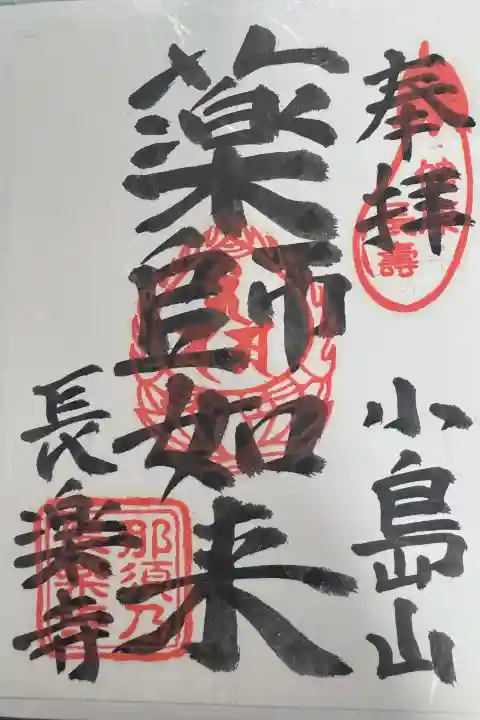 奉拝
小島山
薬師如来
長楽寺
那須乃
長楽寺